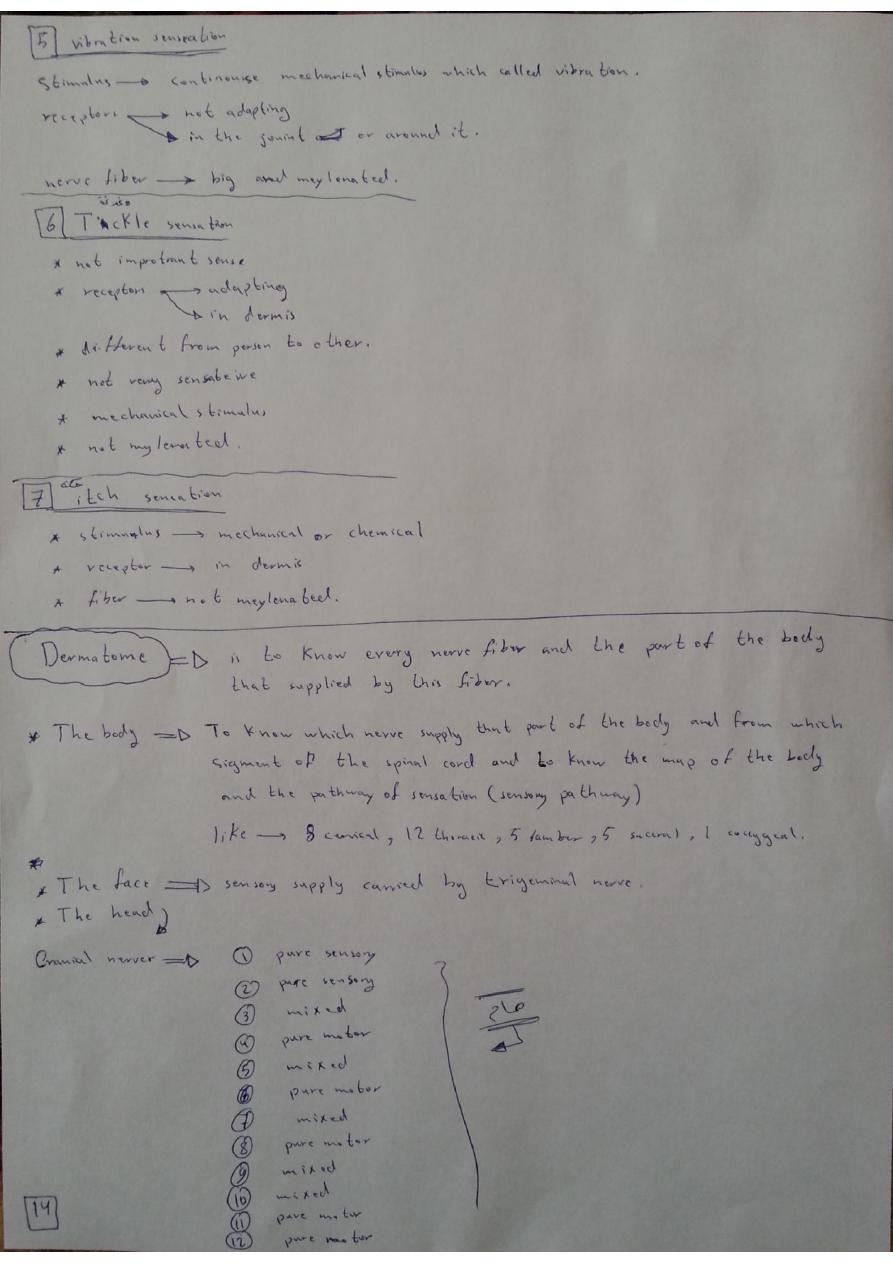 5 vibration senseation
Stimulus → continouse mechanical stimulus which called vibration.
receptors → not adapting
→ in the jouint or around it.
nerve fiber → big and meylenated.
6 Tickle sensation
* not improtrant sense
* receptors → adapting
→ in dermis
* different from person to other.
* not very sensateive
* mechanical stimulus
* not mylenated.
7 itch sensation
* stimulus → mechanical or chemical
* receptor → in dermis
* fiber → not meylenated.
Dermatome ⇒ is to know every nerve fiber and the part of the body
that supplied by this fiber.
* The body ⇒ To know which nerve supply that part of the body and from which
sigment of the spinal cord and to know the map of the body
and the pathway of sensation (sensory pathway)
like → 8 cervical, 12 thoracic, 5 lumber, 5 saceral, 1 coccygeal.
*
* The face ⇒ sensory supply carried by trigeminal nerve.
* The head
Cranial nerver ⇒ 1 pure sensory
2 pure sensory
3 mixed
4 pure motor
5 mixed
6 pure motor
7 mixed
8 pure motor
9 mixed
10 mixed
11 pure motor
12 pure motor
14